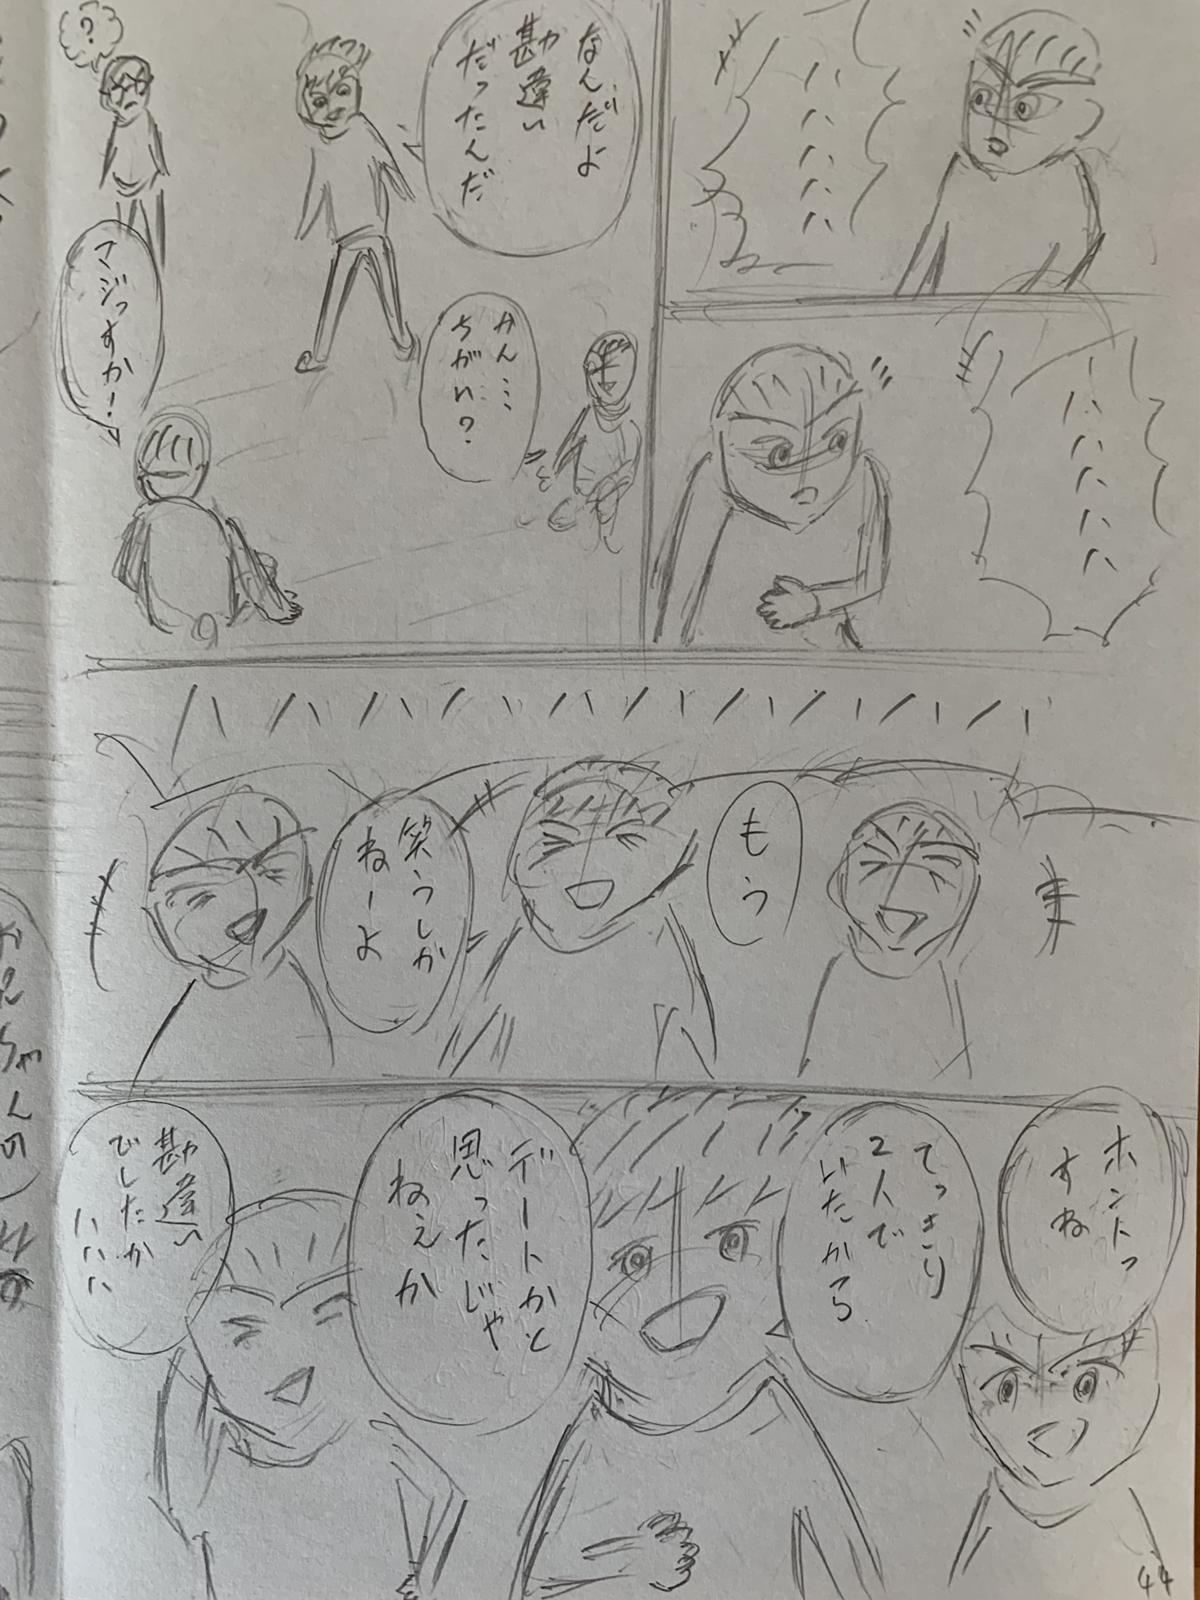 ハハハハハ
ハハハハハ
なんだよ
勘違い
だったんだ
かん……
ちがい?
?
マジっすかー
ハハハハハハハハハハ
もう
笑うしか
ねーよ
ホントっ
すね
てっきり
2人で
いたから
デートかと
思ったじゃ
ねぇか
勘違い
でしたか
ハハハ
44